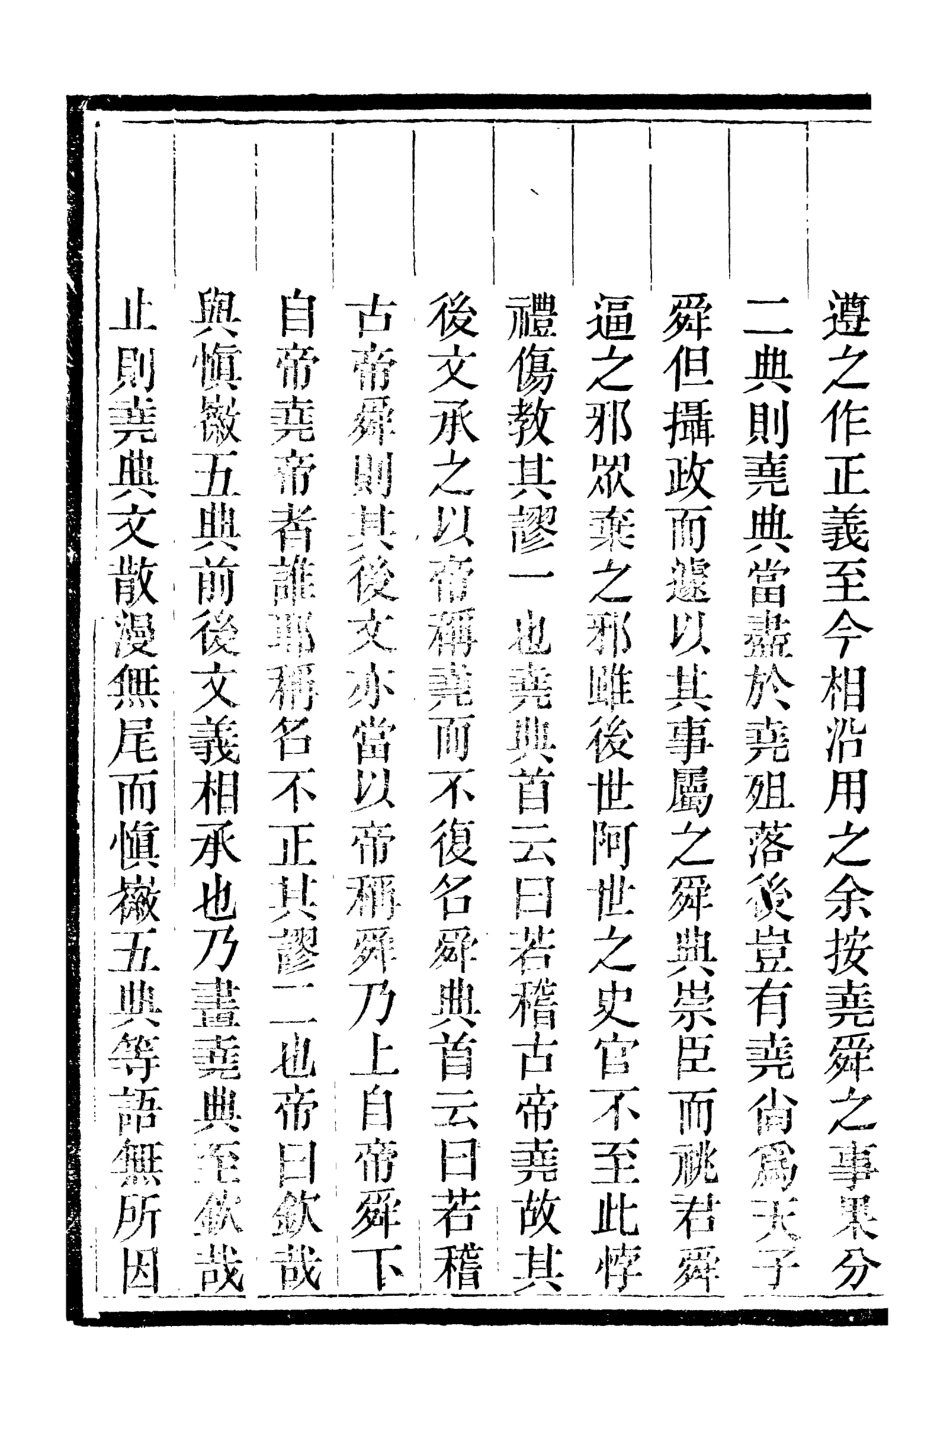 遵之作正義至今相沿用之余按堯舜之事果分
二典則堯典當盡於堯殂落後豈有堯尙爲天子
舜但攝政而遽以其事屬之舜典崇臣而祧君舜
逼之邪眾棄之邪雖後世阿世之史官不至此悖
禮傷教其謬一也堯典首云曰若稽古帝堯故其
後文承之以帝稱堯而不復名舜典首云曰若稽
古帝舜則其後文亦當以帝稱舜乃上自帝舜下
自帝堯帝者誰耶稱名不正其謬二也帝曰欽哉
與愼徽五典前後文義相承也乃畫堯典至欽哉
止則堯典文散漫無尾而愼徽五典等語無所因